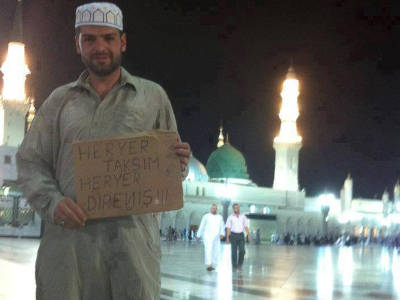 HERYER
TAKSIM
HERYER
DIRENIS!!!